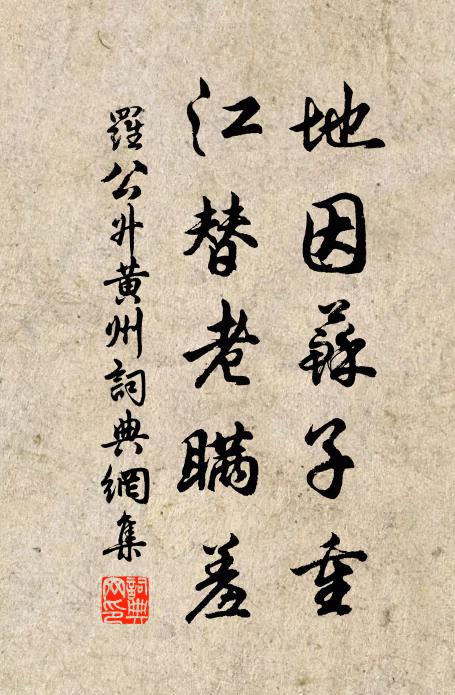 地因蘇子重
江替老瞞羞
羅公升黃州詞典網集
詞典
网印